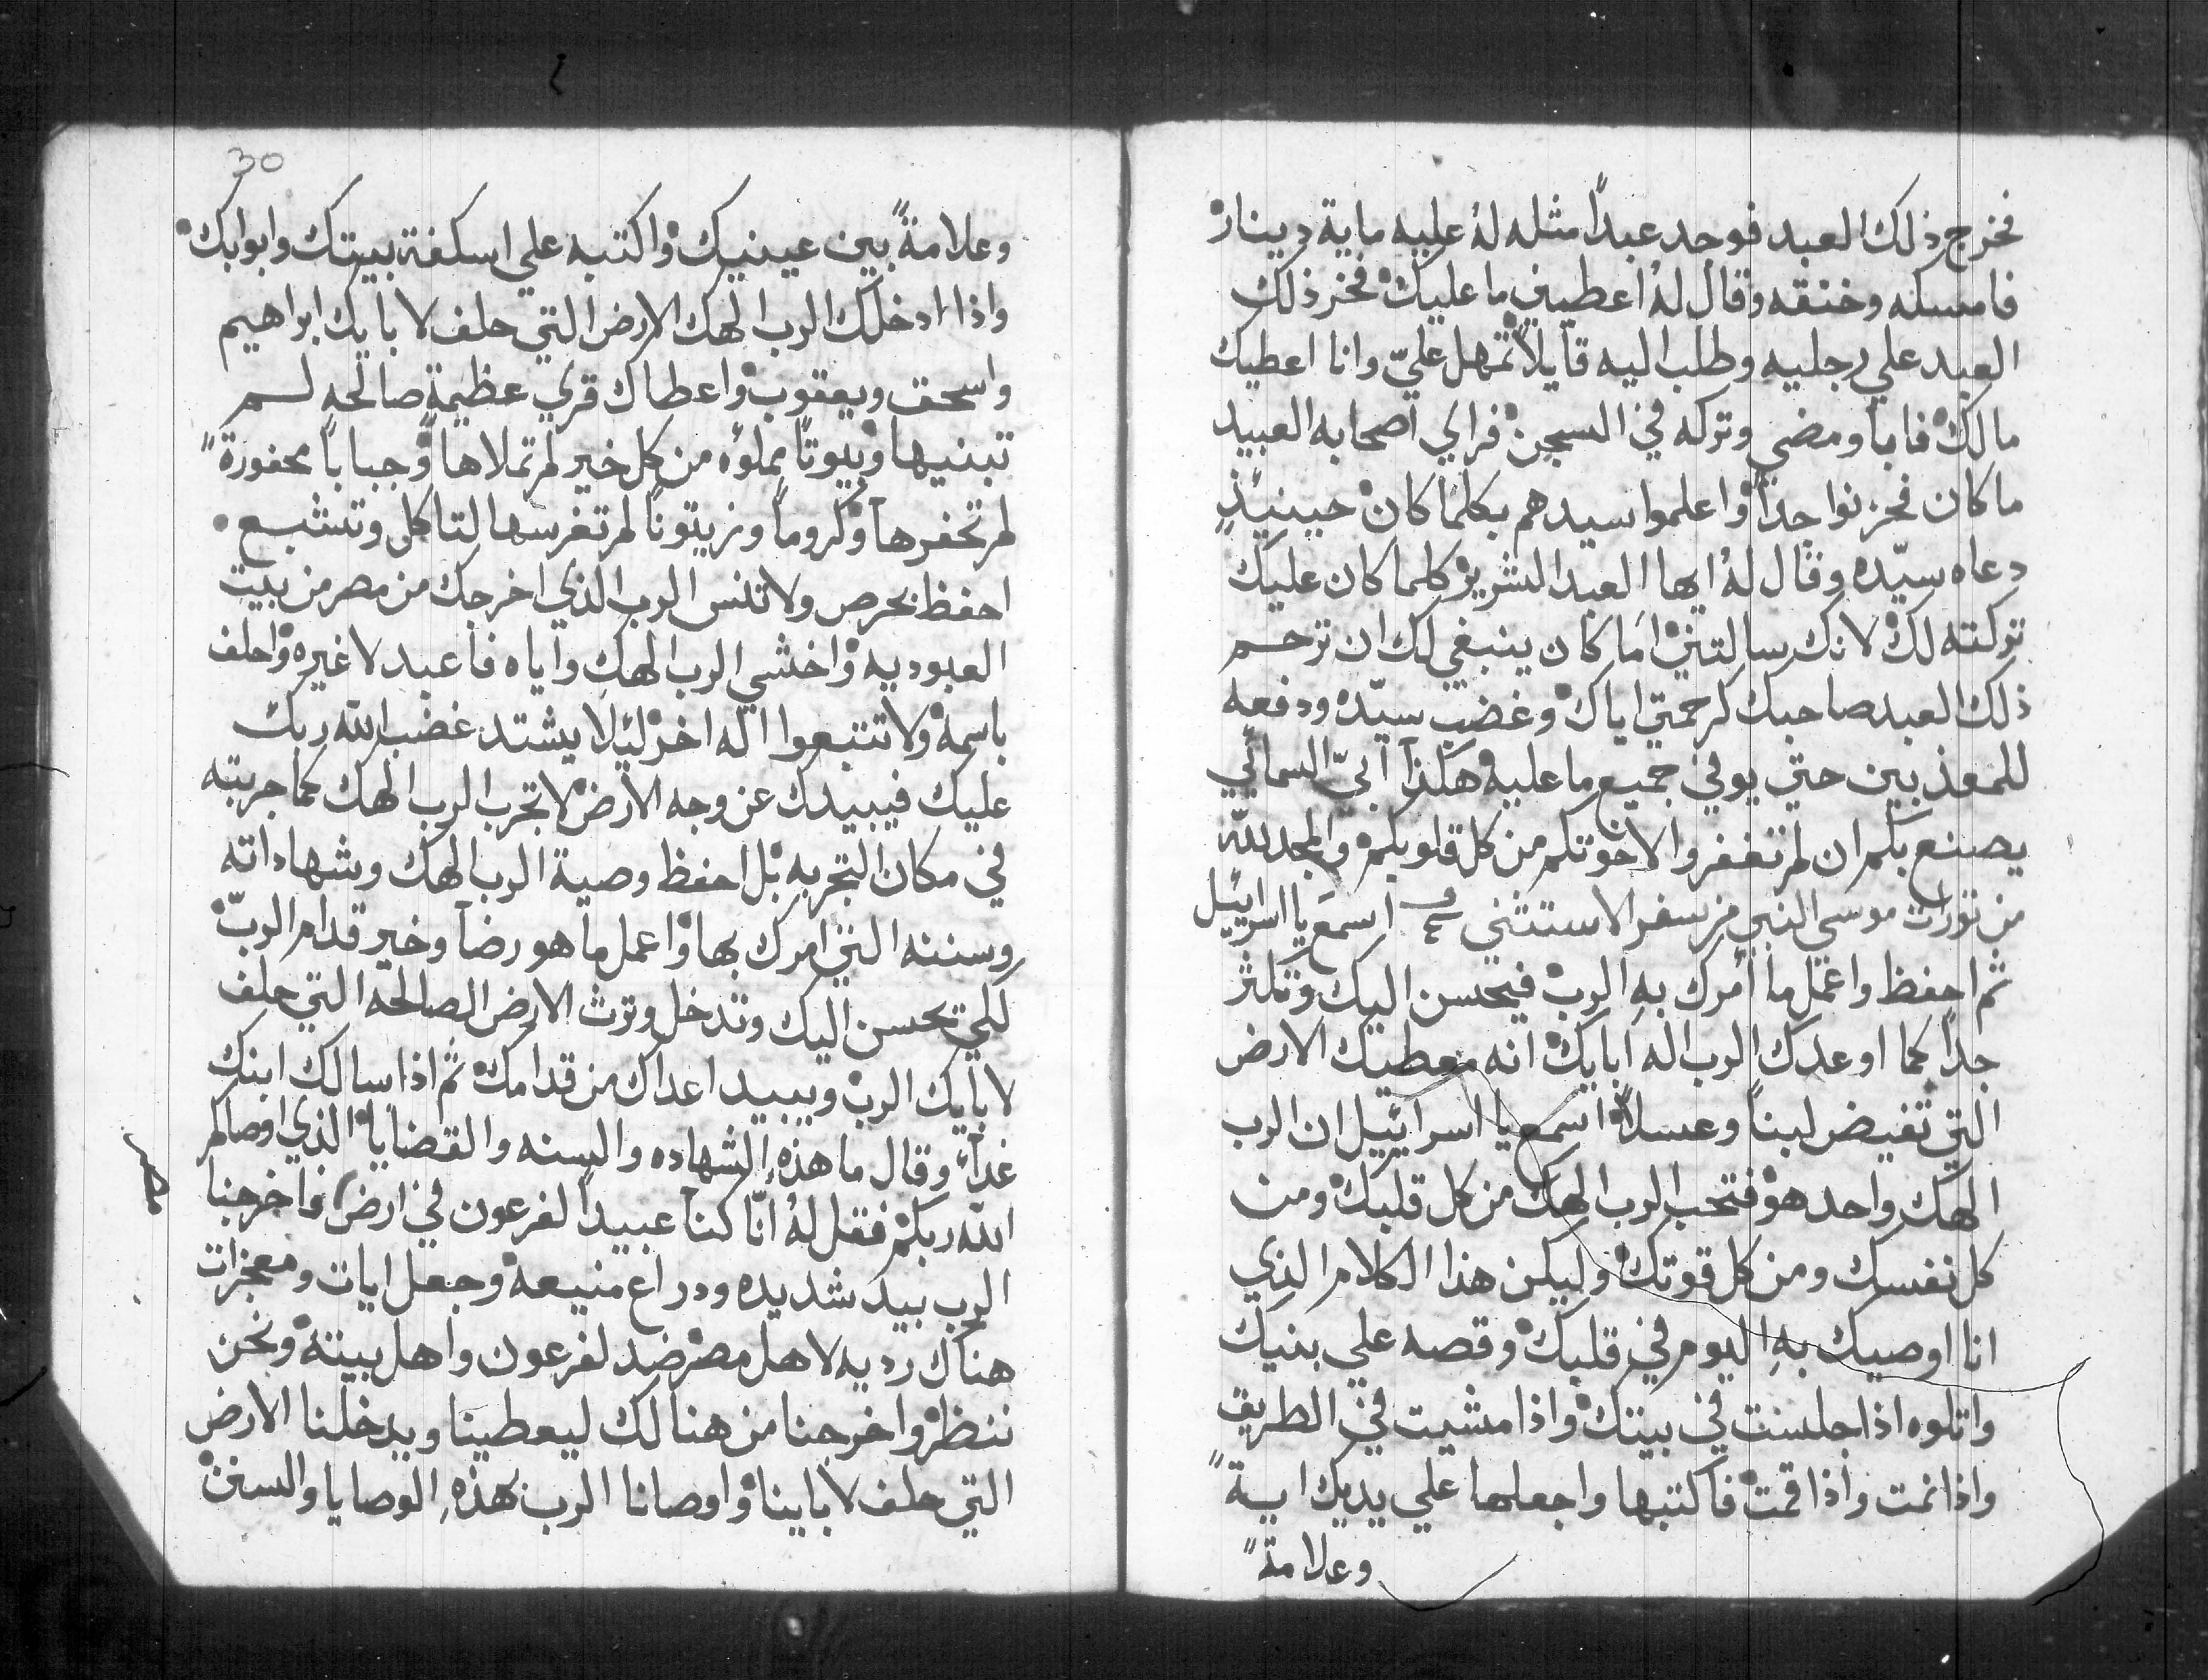 فخرج ذلك العبد فوجد عبداً مثله لهُ عليه ماية دينار
فامسكه وخنقه وقال لهُ اعطيني ما عليك فخر ذلك
العبد علي رجليه وطلب اليه قآيلاً تمهل عليّ وانا اعطيك
مالك فابا ومضي وتركه في السجن فراي اصحابه العبيد
ما كان فحزنوا جداً واعلموا سيدهم بكلما كان حينيذٍ
دعاه سيّده وقال لهُ ايها العبد الشرير كلما كان عليك
تركته لك لانك سالتني اما كان ينبغي لك ان ترحم
ذلك العبد صاحبك كرحمتي اياك وغضب سيّده ودفعه
للمعذبين حتي يوفي جميع ما عليه وهكذا ابيّ السمائي
يصنع بكم ان لم تغفروا لاخوتكم من كل قلوبكم والمجد لله
من تورات موسي النبي من سفر الاستثني اسمع يا اسراييل
ثم احفظ واعمل ما أمرك بهِ الرب فيحسن اليك وتكثر
جداً كما اوعدك الرب اله ابايك انه معطيك الارض
التي تفيض لبناً وعسلاً اسمع يا اسراييل ان الرب
الهك واحد هو فتحب الرب الهك من كل قلبك ومن
كل نفسك ومن كل قوتك وليكن هذا الكلام الذي
انا اوصيك بهِ اليوم في قلبك وقصه علي بنيك
واتلوه اذا جلست في بيتك واذا مشيت في الطريق
واذا نمت واذا قمت فاكتبها واجعلها علي يديك ايةً
وعلامةً
30
وعلامةً بين عينيك واكتبه علي اسكفة بيتك وابوابك
واذا ادخلك الرب الهك الارض التي حلف لابايك ابراهيم
واسحق ويعقوب واعطاك قري عظيمة صالحه لم
تبنيها وبيوتاً مملوه من كل خير لم تملاها وجباباً محفورةً
لم تحفرها وكروماً وزيتوناً لم تغرسها لتاكل وتشبع
احفظ بحرص ولا تنس الرب الذي اخرجك من مصر من بيت
العبوديه واخشي الرب الهك واياه فاعبد لا غيره واحلف
باسمه ولا تتبعوا اله اخر ليلا يشتد غضب الله ربك
عليك فيبيدك عن وجه الارض لا تجرب الرب الهك كما جربته
في مكان التجربه بل احفظ وصية الرب الهك وشهاداته
وسننه التي امرك بها واعمل ما هو رضا وخير قدام الربّ
لكي تحسن اليك وتدخل وترث الارض الصالحه التي حلف
لابايك الرب ويبيد اعداك من قدامك ثم اذا سالك ابنك
غداً وقال ما هذهِ الشهاده والسنه والقضايا الذي اوصاكم
الله ربكم فقل لهُ انّا كنا عبيداً لفرعون في ارض واخرجنا
مصر
الرب بيد شديده ودراع منيعه وجعل ايات ومعجزات
هناك رديه لاهل مصر ضد لفرعون واهل بيته ونحن
ننظر واخرجنا من هنالك ليعطينا ويدخلنا الارض
التي حلف لاباينا واوصانا الرب بهذهِ الوصايا والسنن